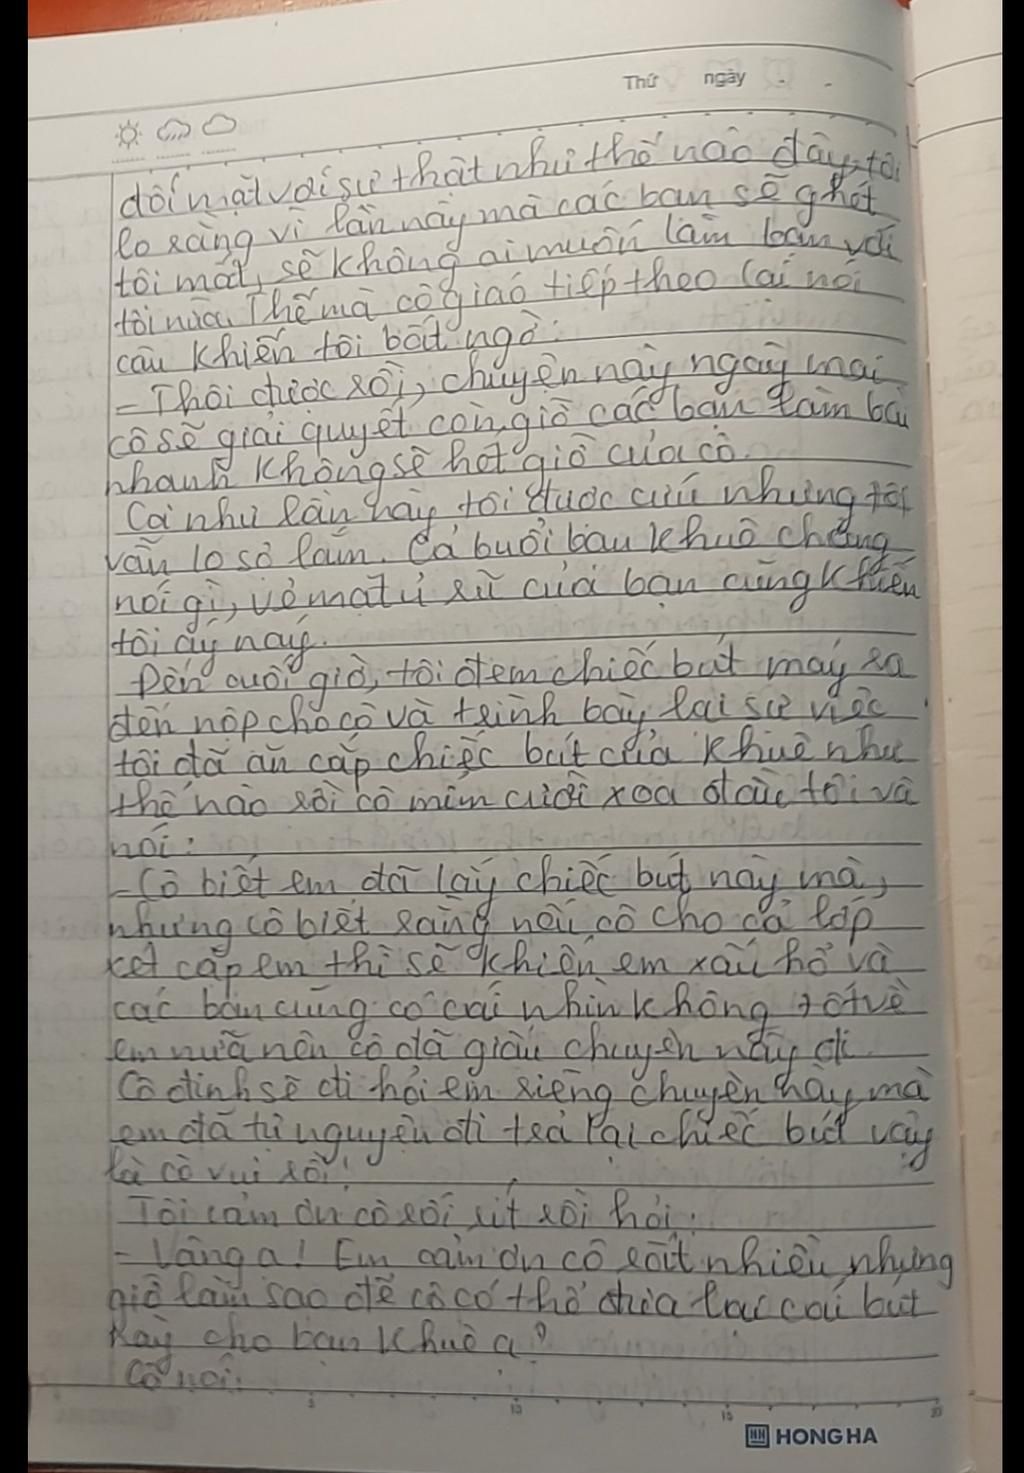 Thứ ngày
đối mặt với sự thật như thế nào đây, tôi
lo rằng vì lần này mà các bạn sẽ ghét
tôi mất, sẽ không ai muốn làm bạn với
tôi nữa. Thế mà cô giáo tiếp theo lại nói
câu khiến tôi bất ngờ:
- Thôi được rồi, chuyện này ngày mai
cô sẽ giải quyết còn giờ các bạn làm bài
nhanh không sẽ hết giờ của cô.
Coi như lần này tôi được cứu nhưng tôi
vẫn lo sợ lắm. Cả buổi bạn Khuê chẳng
nói gì, vẻ mặt ủ rũ của bạn cũng khiến
tôi áy náy.
Đến cuối giờ, tôi đem chiếc bút máy ra
đến nộp cho cô và trình bày lại sự việc
tôi đã ăn cắp chiếc bút của Khuê như
thế nào rồi cô mỉm cười xoa đầu tôi và
nói:
- Cô biết em đã lấy chiếc bút này mà,
nhưng cô biết rằng nếu cô cho cả lớp
xét cặp em thì sẽ khiến em xấu hổ và
các bạn cũng có cái nhìn không tốt về
em nữa nên cô đã giấu chuyện này đi.
Cô định sẽ đi hỏi em riêng chuyện này mà
em đã tự nguyện đi trả lại chiếc bút vậy
là cô vui rồi!
Tôi cảm ơn cô rối rít rồi hỏi:
- Vâng ạ! Em cảm ơn cô rất nhiều nhưng
giờ làm sao để cô có thể đưa lại cái bút
này cho bạn Khuê ạ?
Cô nói:
5 10 15 20
HONG HA